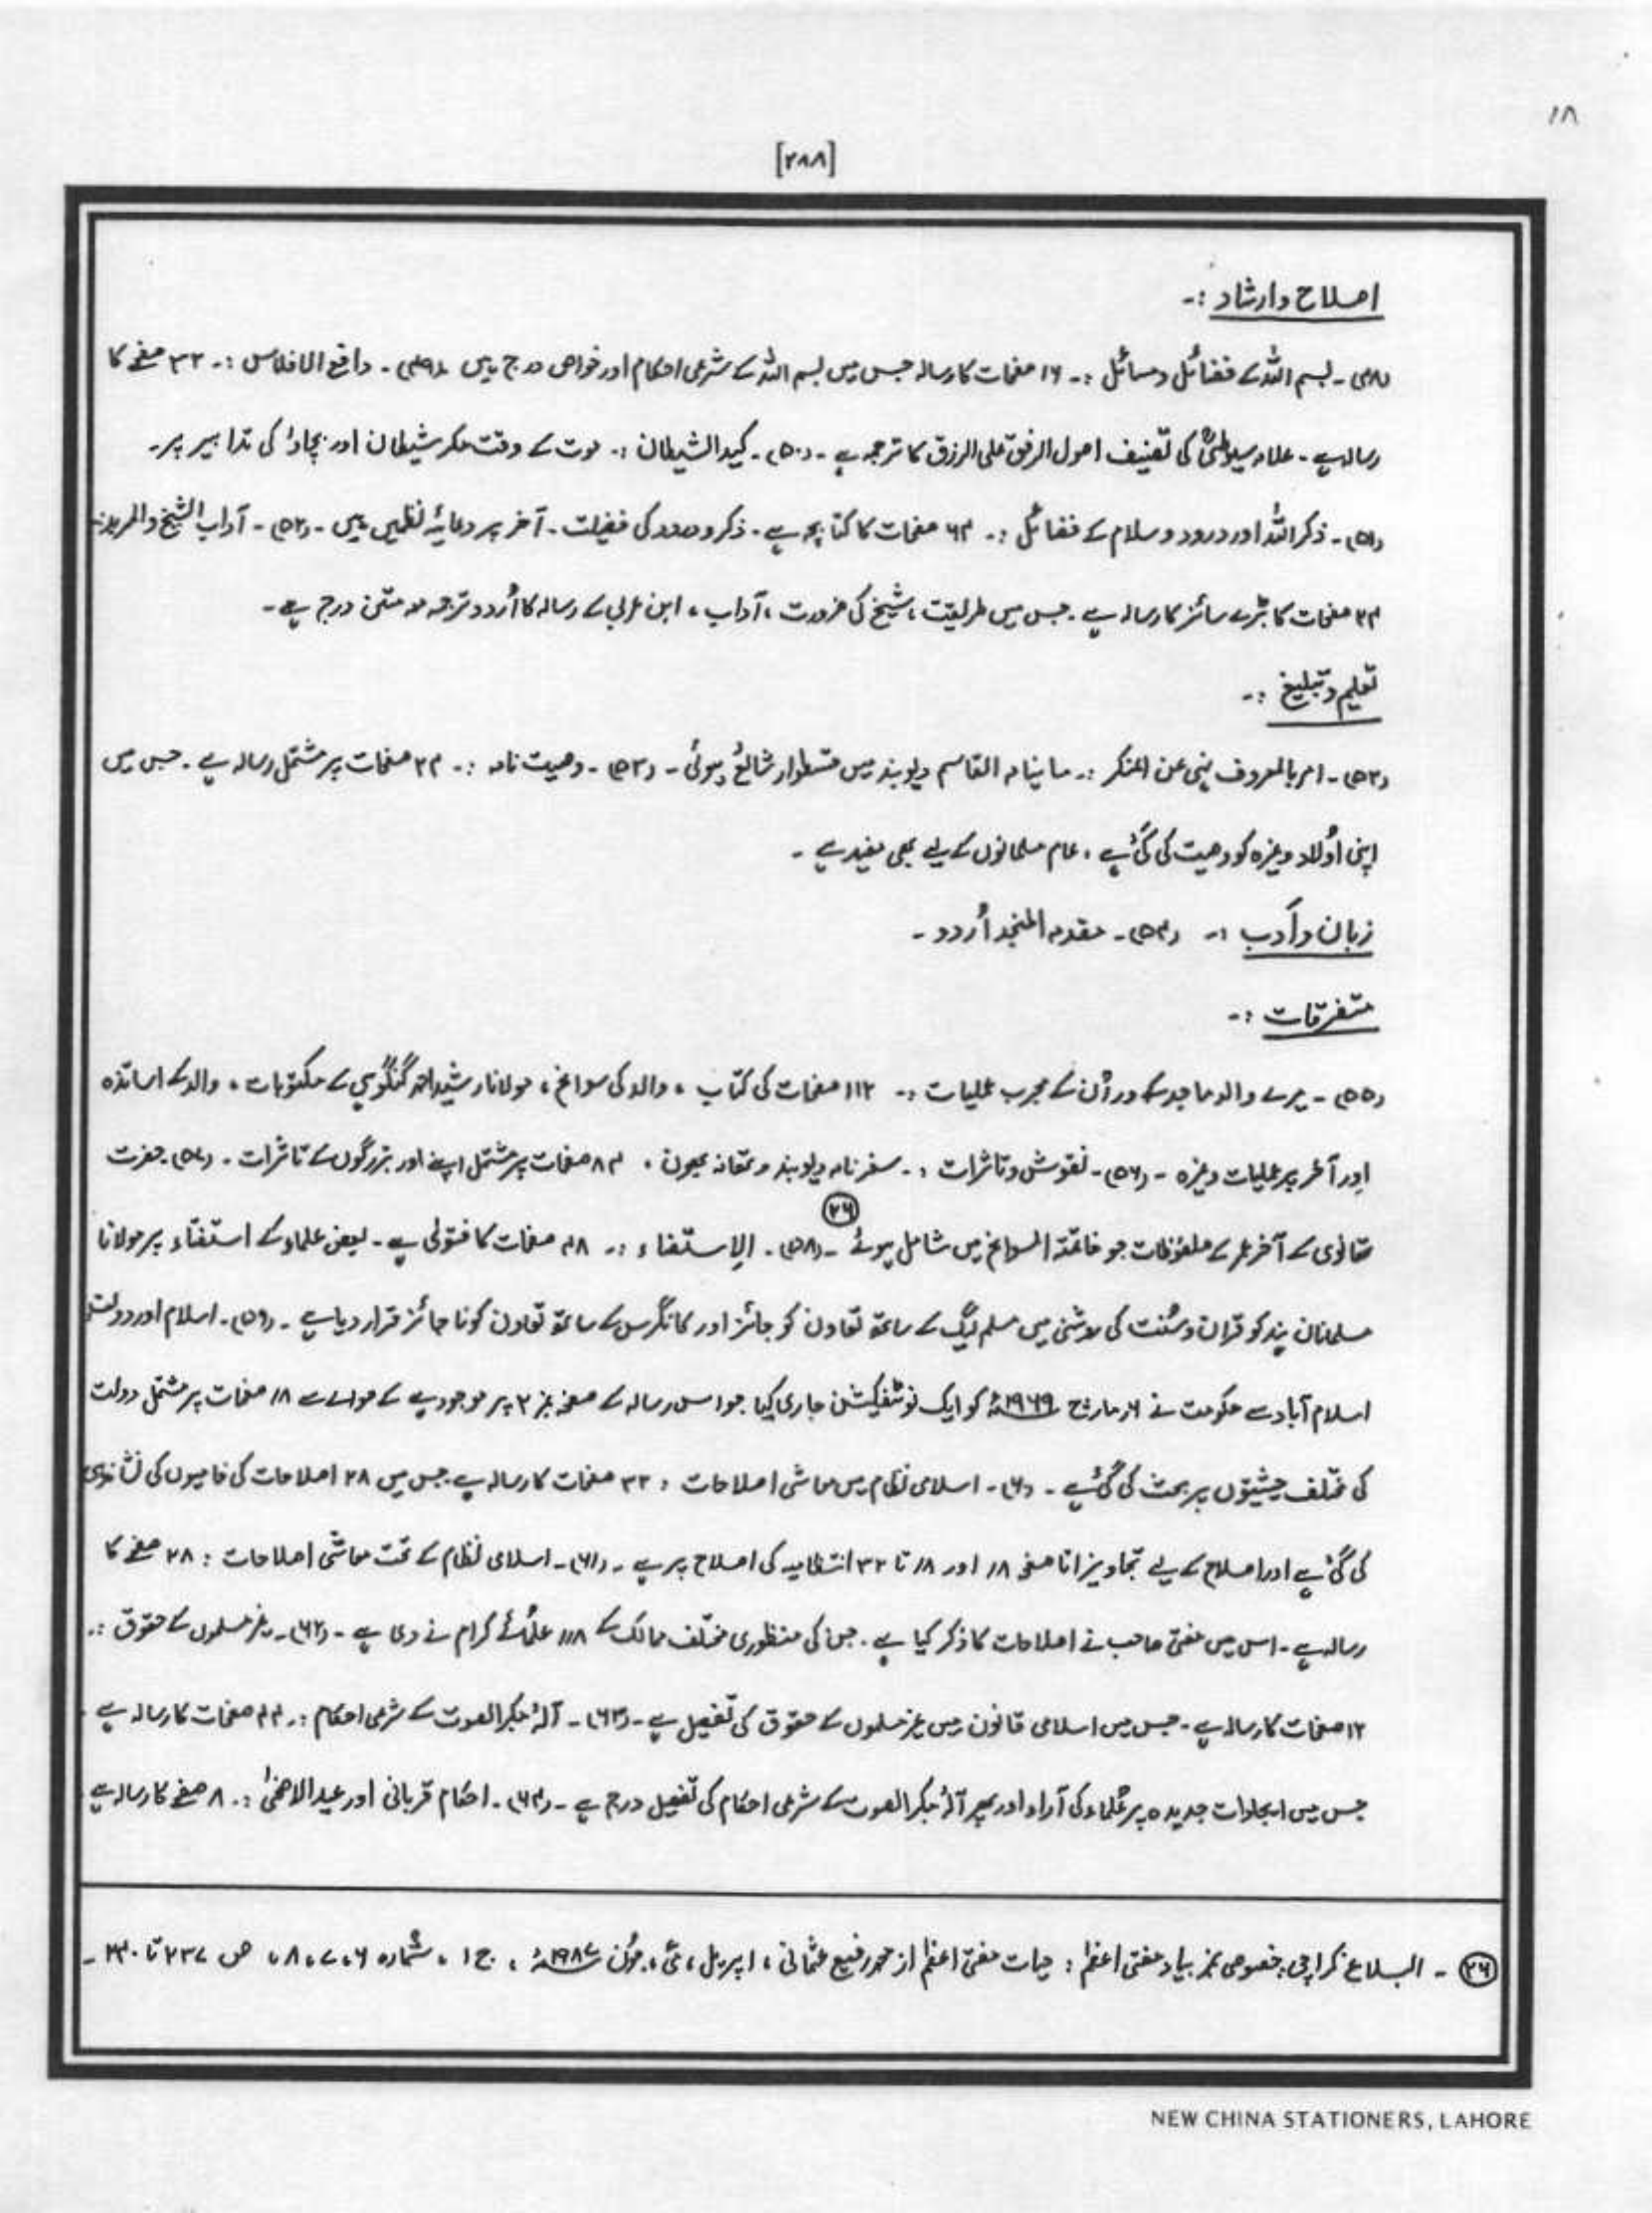 ۱۸
[۲۸۸]
اصلاح و ارشاد :-
(۴۸)- بسم اللہ کے فضائل و مسائل :- ۱۶ صفحات کا رسالہ جس میں بسم اللہ کے شرعی احکام اور خواص درج ہیں (۴۹)- دافع الافلاس :- ۳۲ صفحے کا
رسالہ ہے - علامہ سیوطیؒ کی تصنیف اصول الرفق علی الرزق کا ترجمہ ہے - (۵۰)- کید الشیطان :- موت کے وقت مکر شیطان اور بچاؤ کی تدابیر پر-
(۵۱)- ذکر اللہ اور درود و سلام کے فضائل :- ۶۴ صفحات کا کتابچہ ہے - ذکر و درود کی فضیلت - آخر پر دعائیہ نظمیں ہیں - (۵۲)- آداب الشیخ والمرید :-
۲۴ صفحات کا بڑے سائز کا رسالہ ہے - جس میں طریقت ، شیخ کی ضرورت ، آداب ، ابن عربی کے رسالہ کا اُردو ترجمہ مع متن درج ہے -
تعلیم و تبلیغ :-
(۵۲)- امر بالمعروف نہی عن المنکر :- ماہنامہ القاسم دیوبند میں قسطوار شائع ہوئی - (۵۳)- وصیت نامہ :- ۲۴ صفحات پر مشتمل رسالہ ہے - جس میں
اپنی اولاد وغیرہ کو وصیت کی گئی ہے ، عام مسلمانوں کے لیے بھی مفید ہے -
زبان و اَدب :- (۵۴)- مقدمہ المنجد اُردو -
متفرقات :-
(۵۵)- میرے والد ماجد کے اور اُن کے مجرب عملیات :- ۱۱۲ صفحات کی کتاب ، والد کی سوانح ، مولانا رشید احمد گنگوہی کے مکتوبات ، والد کے اساتذہ
اور آخر پر عملیات وغیرہ - (۵۶)- نقوش و تاثرات :- سفرنامہ دیوبند و تھانہ بھون ، ۸۴ صفحات پر مشتمل اپنے اور بزرگوں کے تاثرات - (۵۷) حضرت
تھانوی کے آخر عمر کے ملفوظات جو خاتمۃ السوانح میں شامل ہوئے (۲۶) - (۵۸)- الإستفتاء :- ۴۸ صفحات کا فتویٰ ہے - بعض علماء کے استفتاء پر مولانا
مسلمانان ہند کو قران و سُنت کی روشنی میں مسلم لیگ کے ساتھ تعاون کو جائز اور کانگرس کے ساتھ تعاون کو ناجائز قرار دیا ہے - (۵۹)- اسلام اور دولت
اسلام آباد سے حکومت نے مارچ ۱۹۶۹ء کو ایک نوٹیفیکیشن جاری کیا جو اس رسالہ کے صفحہ نمبر ۲ پر موجود ہے کے حوالے سے ۱۸ صفحات پر مشتمل دولت
کی مختلف حیثیتوں پر بحث کی گئی ہے - (۶۰)- اسلامی نظام میں معاشی اصلاحات : ۳۲ صفحات کا رسالہ ہے جس میں ۲۸ اصلاحات کی خامیوں کی نشاندہی
کی گئی ہے اور اصلاح کے لیے تجاویز ۱ تا صفحہ ۱۸ اور ۱۸ تا ۳۲ انتظامیہ کی اصلاح پر ہے - (۶۱)- اسلامی نظام کے تحت معاشی اصلاحات : ۲۸ صفحے کا
رسالہ ہے - اس میں مفتی صاحب نے اصلاحات کا ذکر کیا ہے - جن کی منظوری مختلف ممالک کے ۱۱۸ علمائے کرام نے دی ہے - (۶۲)- غیر مسلموں کے حقوق :-
۱۲ صفحات کا رسالہ ہے - جس میں اسلامی قانون میں غیر مسلموں کے حقوق کی تفصیل ہے - (۶۳)- آلۂ مکبر الصوت کے شرعی احکام :- ۴۴ صفحات کا رسالہ ہے
جس میں ایجادات جدیدہ پر عُلماء کی آراء اور پھر آلۂ مکبر الصوت کے شرعی احکام کی تفصیل درج ہے - (۶۴)- احکام قربانی اور عید الاضحیٰ :- ۸ صفحے کا رسالہ ہے
(۲۶) - البلاغ کراچی خصوصی نمبر بیاد مفتی اعظم : حیات مفتی اعظم از محمد رفیع عثمانی ، اپریل ، مئی ، جون ۱۹۸۷ء ، ج ۱ ، شمارہ ۶،۷،۸، ص ۲۳۷ تا ۲۴۰ -
NEW CHINA STATIONERS, LAHORE